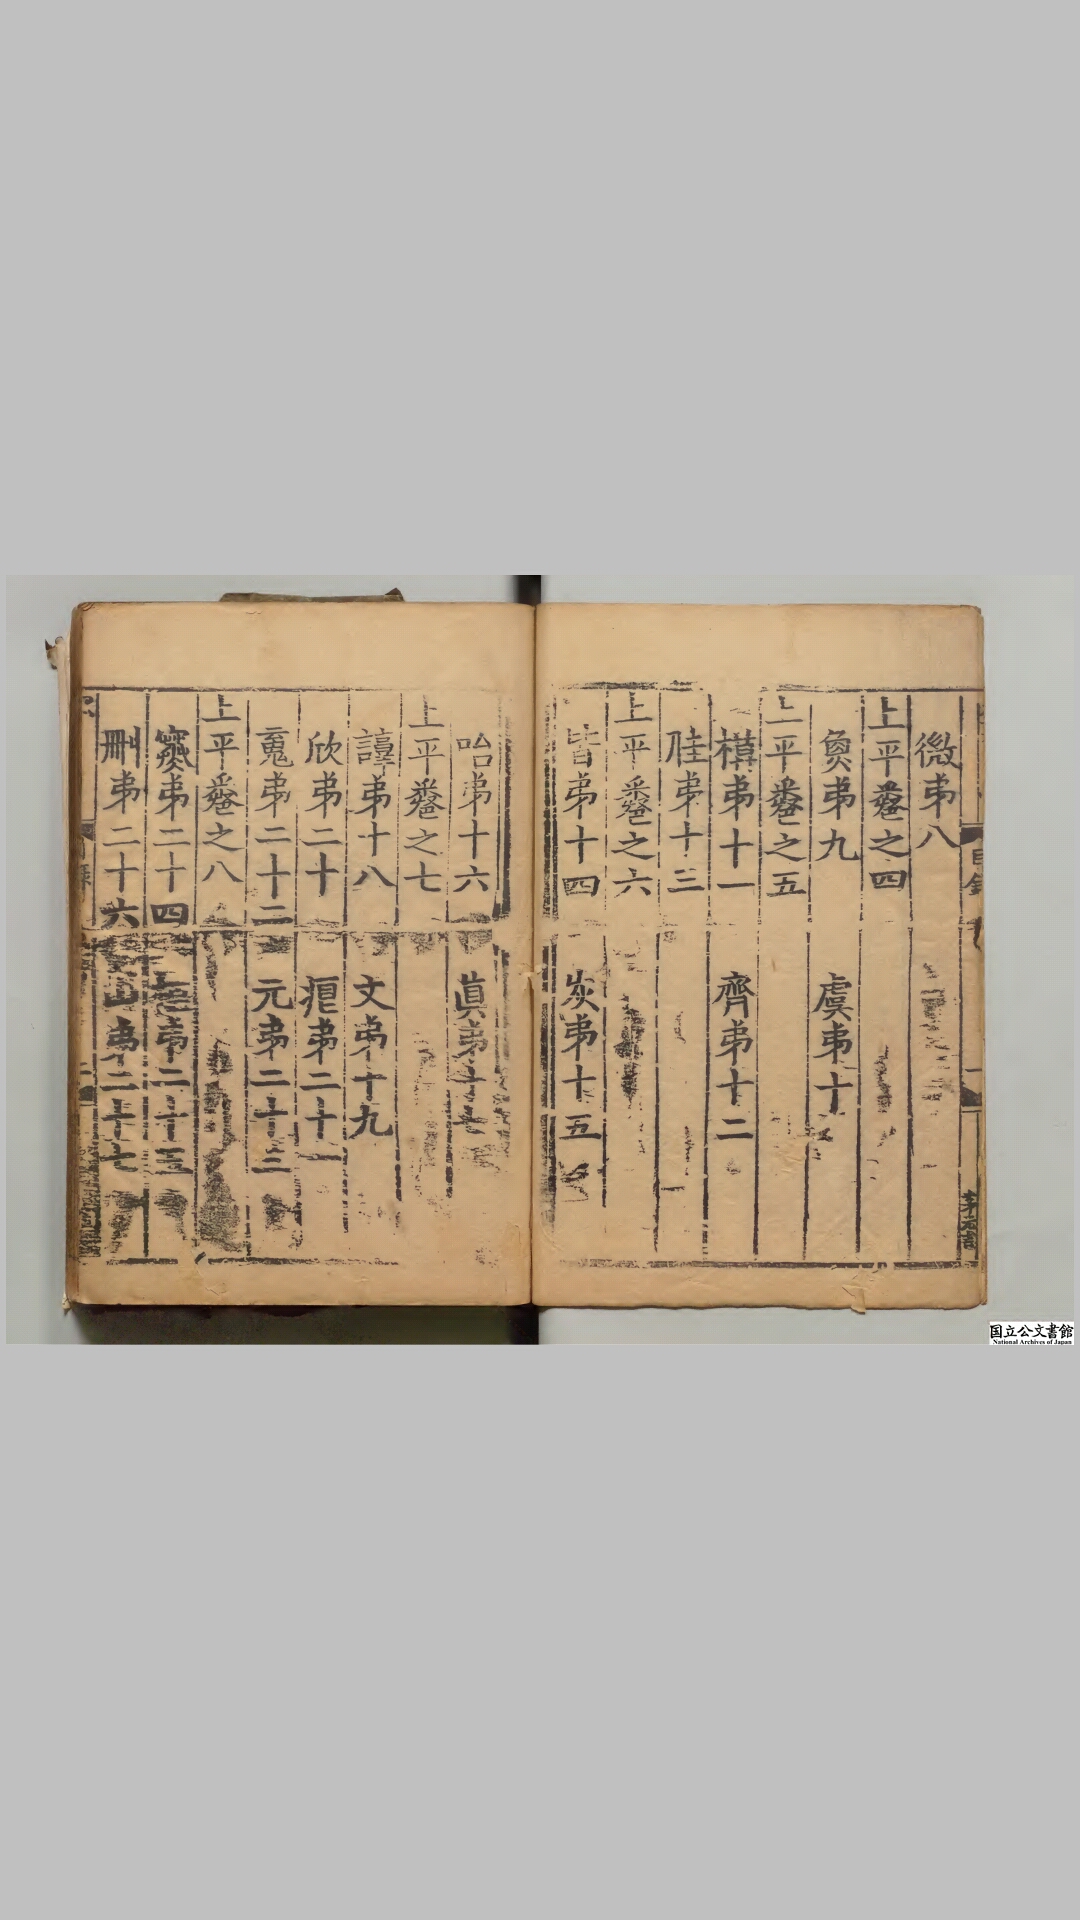 微弟八
上平㢧之四
魚弟九
虞弟十
上平㢧之五
模弟十一
齊弟十二
佳弟十三
上平㢧之六
皆弟十四
灰弟十五
咍弟十六
眞弟十七
上平㢧之七
諄弟十八
文弟十九
欣弟二十
痕弟二十一
䰟弟二十二
元弟二十三
上平㢧之八
弟二十四
弟二十五
刪弟二十六
山弟二十七
目錄
国立公文書館
National Archives of Japan